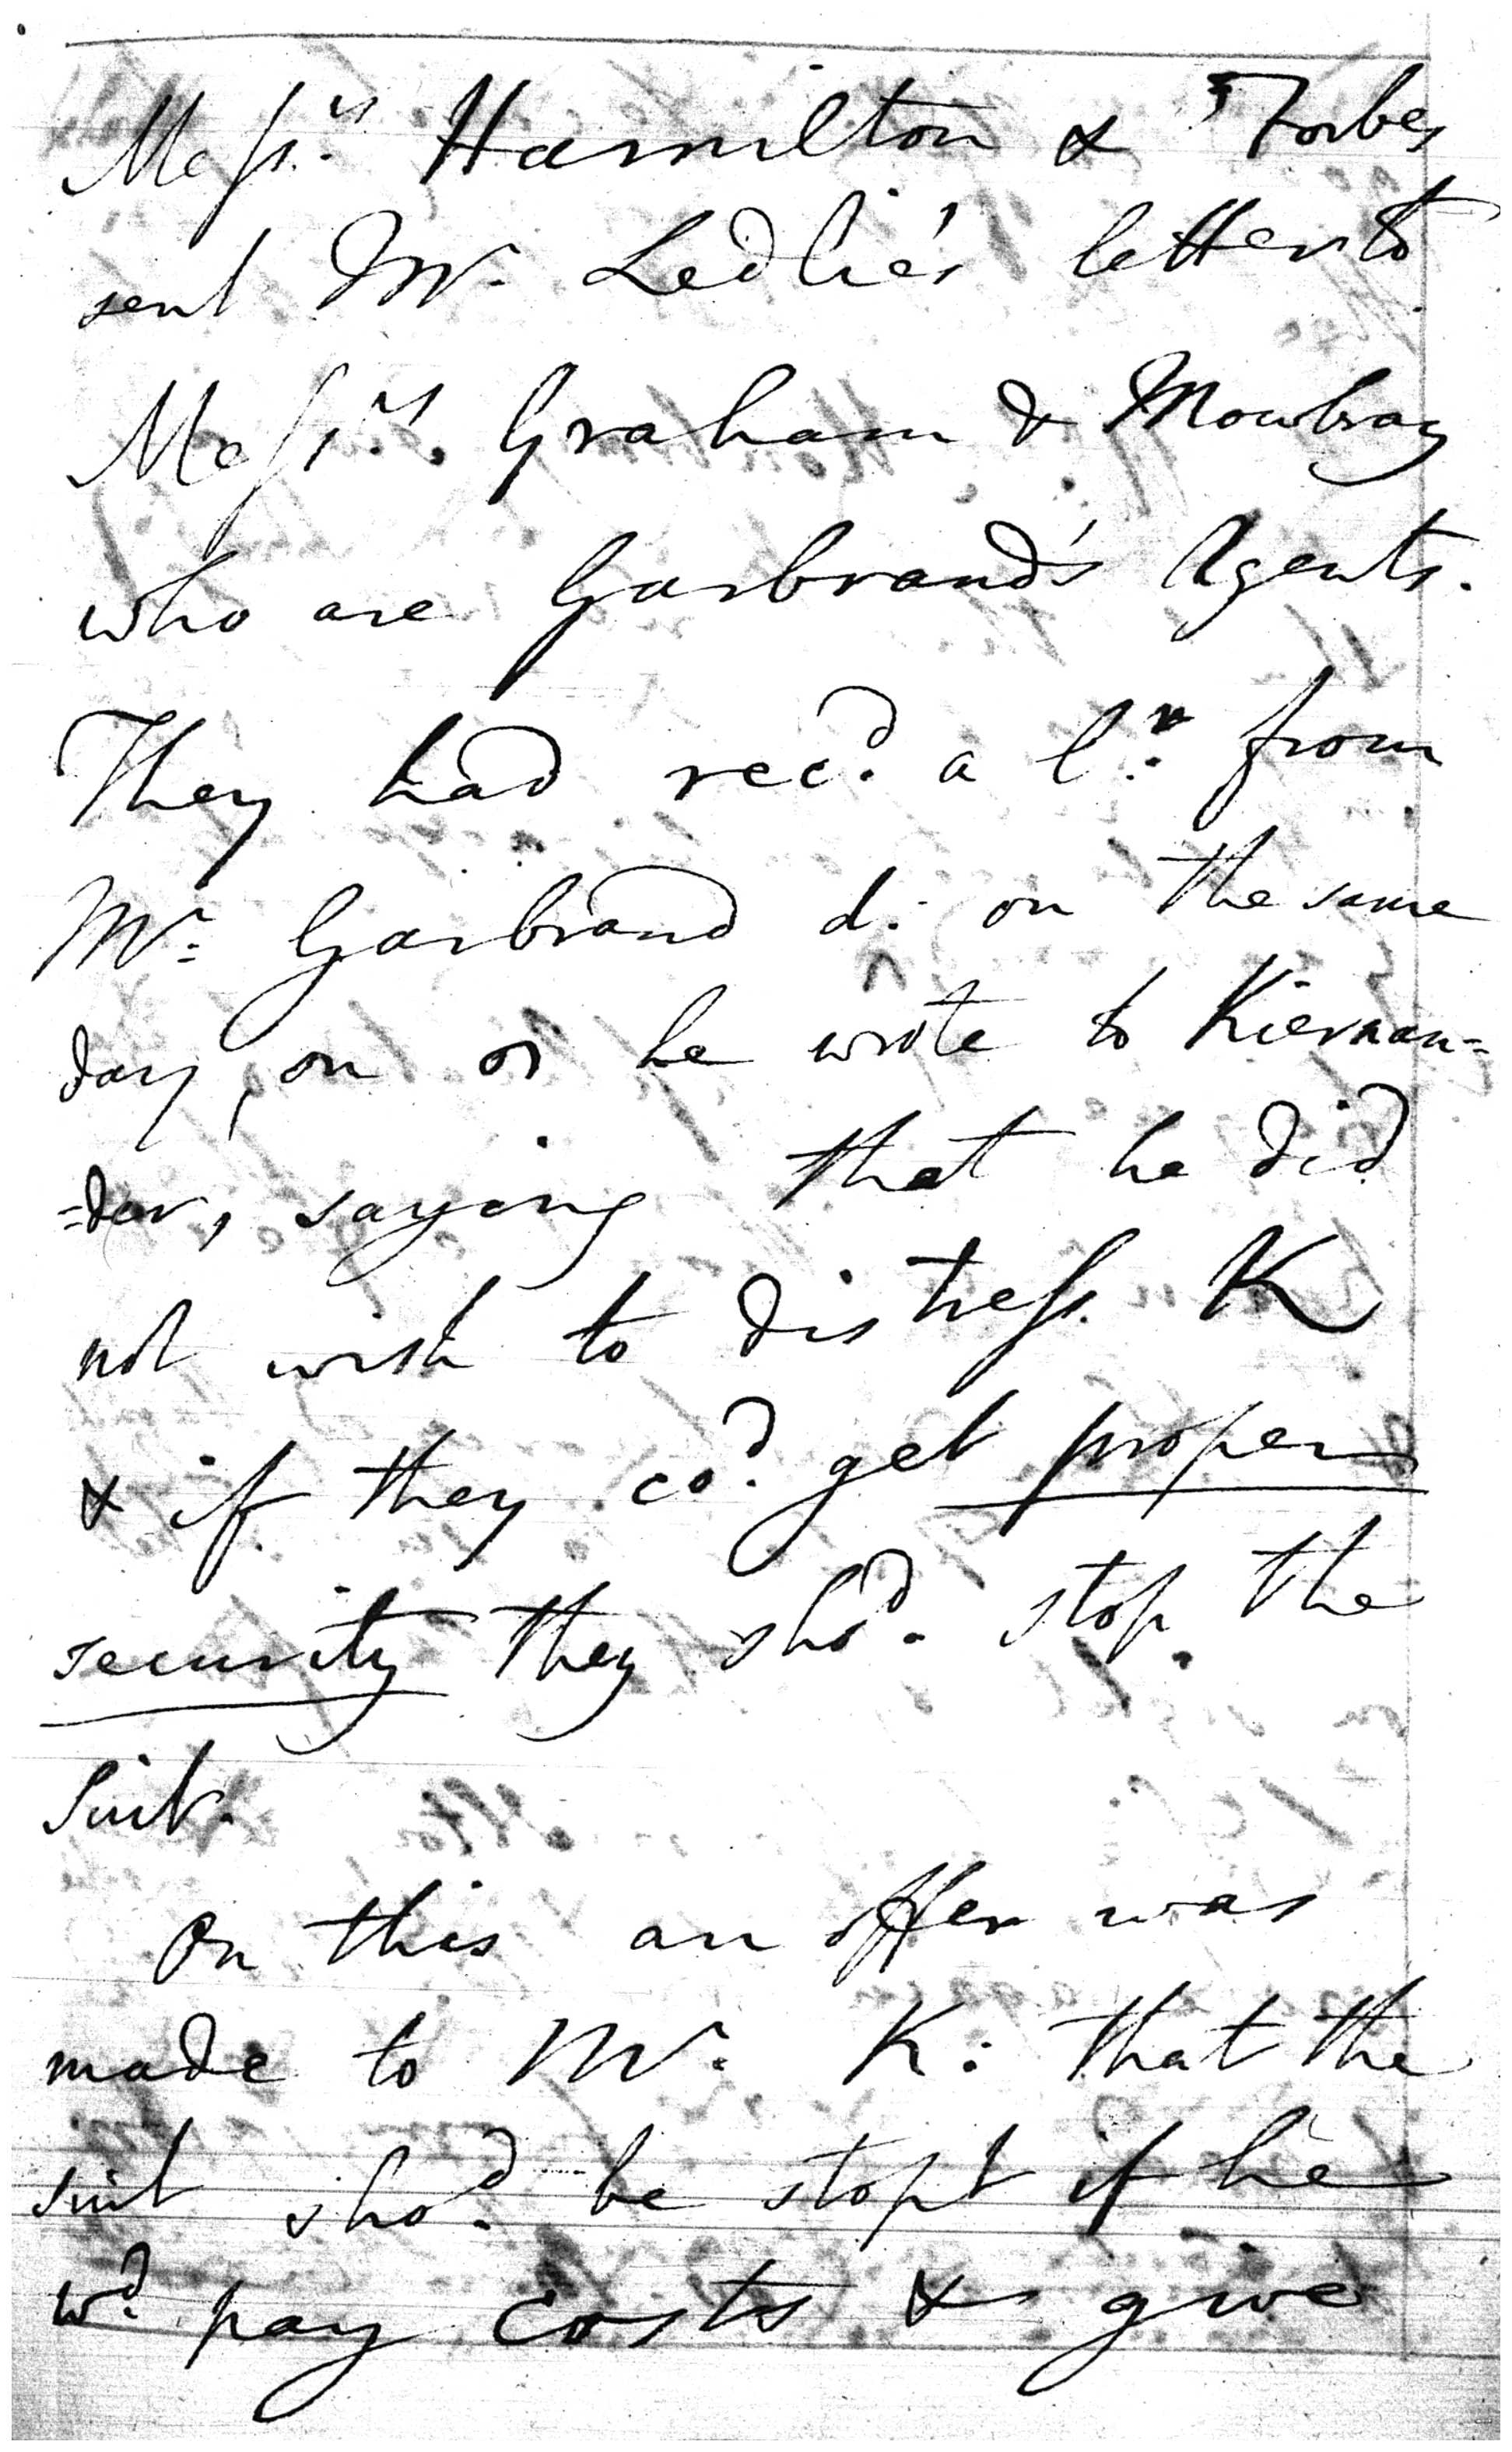 Messrs. Hamilton & Forbes
sent Mr. Ledlie's letter to
Messrs. Graham & Mowbray
who are Garbrand's Agents.
They had recd. a lr. from
Mr. Garbrand d. on the same
day, on or he wrote to Kiernan=
=der, saying that he did
not wish to distress K
& if they cod. get proper
security they shod. stop the
Suit.
On this an offer was
made to Mr. K: that the
suit shod. be stopt if he
wd. pay costs & give